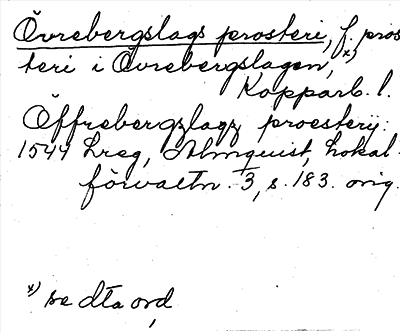 Övrebergslags prosteri, f. pros
teri i Övrebergslagen, x)
Kopparb. l.
Öffrebergzlagz proestery:
1544 Lreg, Almquist, Lokal-
förvaltn. I 3, s. 183. orig.
x) se dta ord